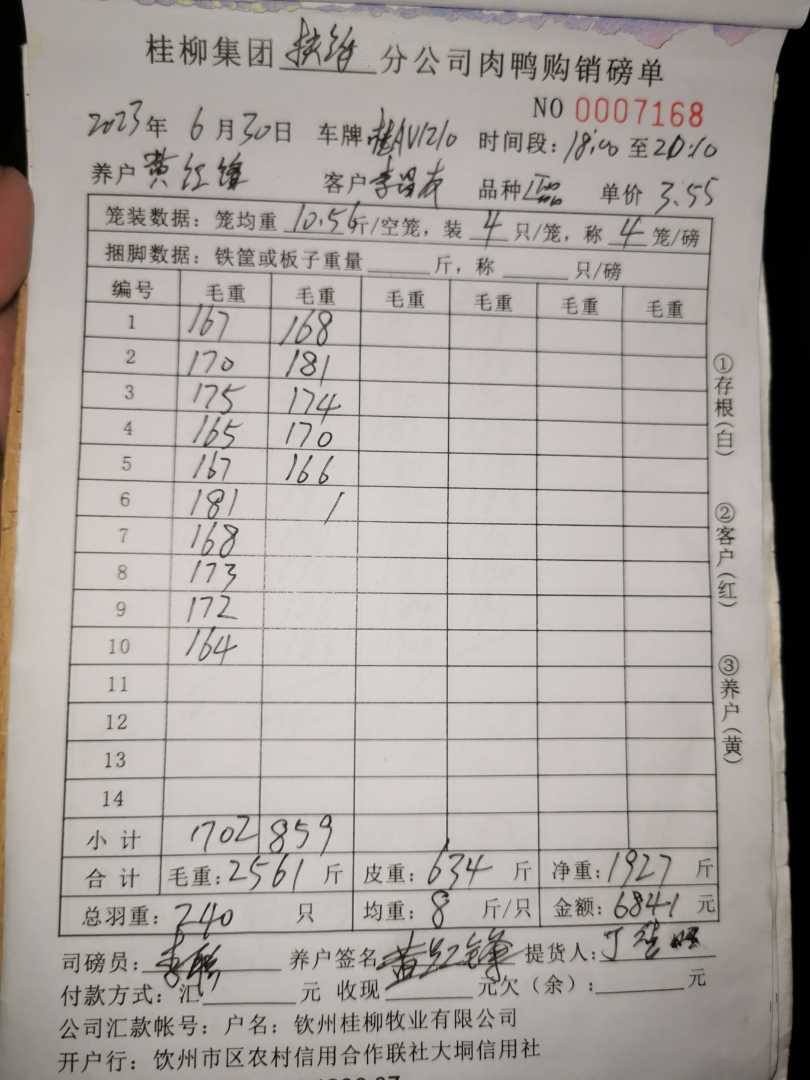 桂柳集团扶绥分公司肉鸭购销磅单
NO 0007168
2023年 6月30日 车牌桂AV1210 时间段:18:00至20:10
养户黄红锋 客户李昌友 品种 单价3.55
笼装数据:笼均重10.56斤/空笼,装4只/笼,称4笼/磅
捆脚数据:铁筐或板子重量 斤,称 只/磅
编号 毛重 毛重 毛重 毛重 毛重 毛重
1 167 168
2 170 181
3 175 174
4 165 170
5 167 166
6 181 /
7 168
8 173
9 172
10 164
11
12
13
14
小计 1702 859
合计 毛重:2561斤 皮重:634斤 净重:1927斤
总羽重:240只 均重:8斤/只 金额:6841元
司磅员: 养户签名黄红锋 提货人:
付款方式:汇 元 收现 元欠(余): 元
公司汇款帐号:户名:钦州桂柳牧业有限公司
开户行:饮州市区农村信用合作联社大垌信用社
①存根(白)
②客户(红)
③养户(黄)